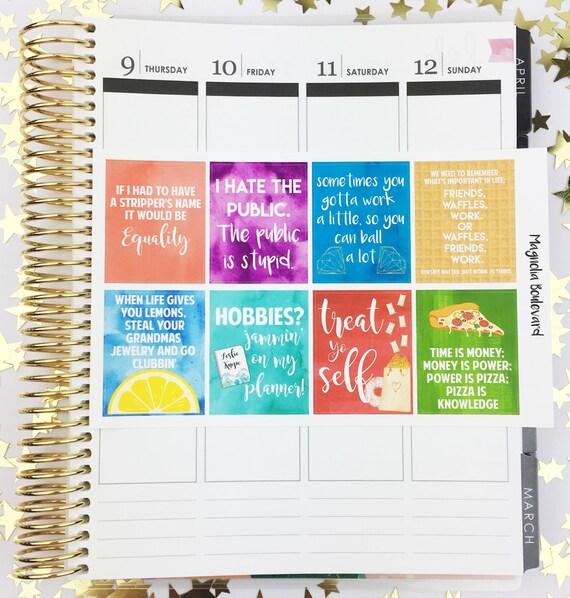 9 THURSDAY
10 FRIDAY
11 SATURDAY
12 SUNDAY
APRIL
IF I HAD TO HAVE
A STRIPPER'S NAME
IT WOULD BE
Equality
I HATE THE
PUBLIC.
The public
is stupid.
sometimes you
gotta work
a little, so you
can ball
a lot
WE NEED TO REMEMBER
WHAT'S IMPORTANT IN LIFE:
FRIENDS,
WAFFLES,
WORK.
OR
WAFFLES,
FRIENDS,
WORK.
DOESN'T MATTER, BUT WORK IS THIRD.
Magnolia Boulevard
WHEN LIFE GIVES
YOU LEMONS,
STEAL YOUR
GRANDMAS
JEWELRY AND GO
CLUBBIN'
HOBBIES?
jammin'
on my
planner!
Leslie
Knope
treat
yo
self
TIME IS MONEY;
MONEY IS POWER;
POWER IS PIZZA;
PIZZA IS
KNOWLEDGE
MARCH